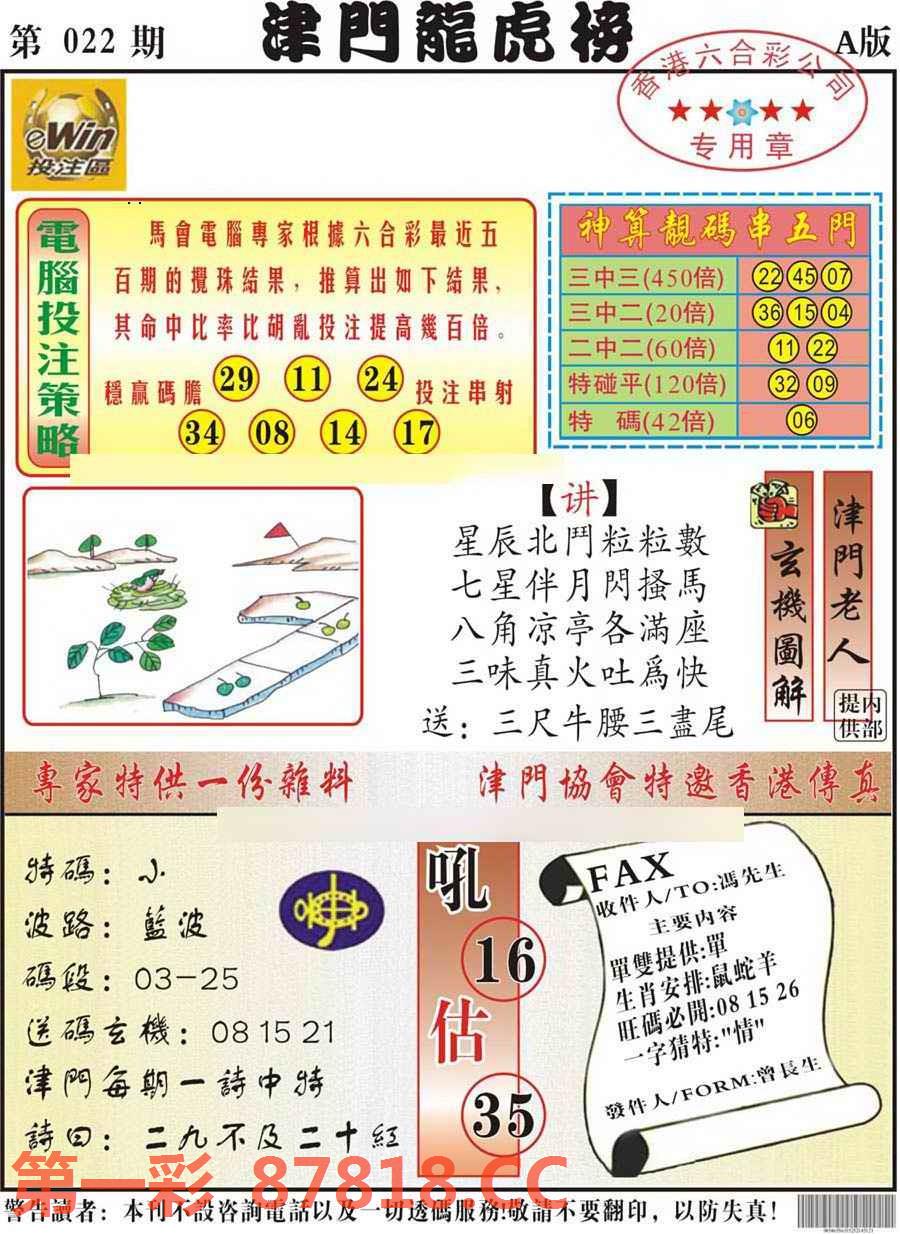 第 022 期
津門龍虎榜
A版
香港六合彩公司
专用章
eWin
投注區
電腦投注策略
馬會電腦專家根據六合彩最近五
百期的攪珠結果，推算出如下結果，
其命中比率比胡亂投注提高幾百倍。
穩贏碼膽 29 11 24 投注串射
34 08 14 17
神算靚碼串五門
三中三(450倍) 22 45 07
三中二(20倍) 36 15 04
二中二(60倍) 11 22
特碰平(120倍) 32 09
特 碼(42倍) 06
【讲】
星辰北鬥粒粒數
七星伴月閃掻馬
八角凉亭各滿座
三味真火吐爲快
送：三尺牛腰三盡尾
玄機圖解
津門老人
内部提供
專家特供一份雜料
津門協會特邀香港傳真
特碼：小
波路：藍波
碼段：03-25
送碼玄機：08 15 21
津門每期一詩中特
詩曰：二九不及二十紅
吼
16
估
35
FAX
收件人/TO:馮先生
主要内容
單雙提供:單
生肖安排:鼠蛇羊
旺碼必開:08 15 26
一字猜特:"情"
發件人/FORM:曾長生
第一彩 87818.CC
警告讀者：本刊不設咨詢電話以及一切透碼服務!敬請不要翻印，以防失真！